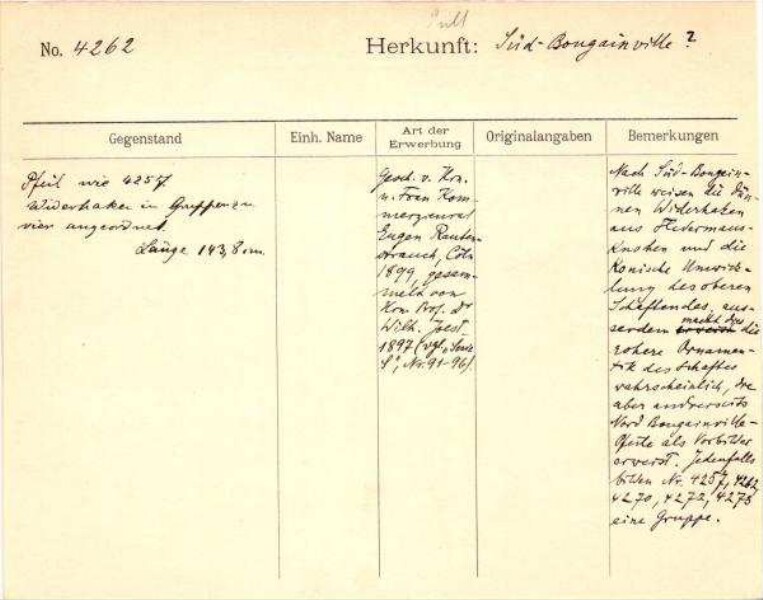 No. 4262
Herkunft: Süd-Bougainville?
Gegenstand
Einh. Name
Art der Erwerbung
Originalangaben
Bemerkungen
Pfeil wie 4257.
Widerhaken in Gruppen zu
vier angeordnet.
Länge 143,8 cm.
Gesch. v. Hrn.
u. Frau Kom-
merzienrat
Eugen Rauten-
strauch, Cöln
1899, gesam-
melt von
Hrn. Prof. Dr
Wilh. Joest
1897 (vgl. "Serie
S", Nr. 91-96).
Nach Süd-Bougain-
ville weisen die dün-
nen Widerhaken
aus Fledermaus-
knochen und die
konische Umwick-
lung des oberen
Schaftendes, aus-
serdem macht dies die
rohere Ornamen-
tik des Schaftes
wahrscheinlich, die
aber andrerseits
Nord Bougainville-
Pfeile als Vorbilder
erweist. Jedenfalls
bilden Nr. 4257, 4262,
4270, 4272, 4278
eine Gruppe.